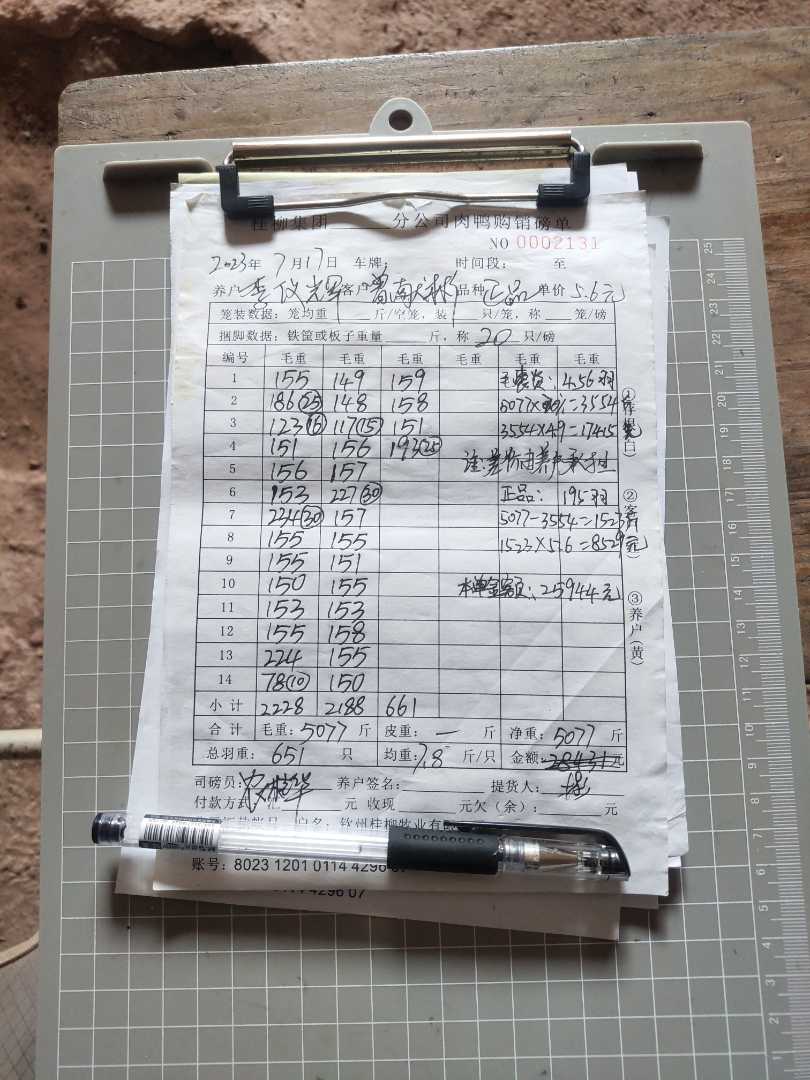 桂柳集团 分公司肉鸭购销磅单
NO 0002131
2023年 7月17日 车牌: 时间段: 至
养户 李仪 客户 曾南 品种 正品 单价 5.6元
笼装数据: 笼均重 斤/空笼, 装 只/笼, 称 笼/磅
捆脚数据: 铁筐或板子重量 斤, 称 20 只/磅
编号 毛重 毛重 毛重 毛重 毛重 毛重
1 155 149 159 456羽
2 186(25) 148 158 5077×70%=3554
3 123(16) 117(15) 151 3554×4.9=17415
4 151 156 193(25)
5 156 157 注:
6 153 227(30) 正品: 195羽
7 234(30) 157 5077-3554=1523
8 155 155 1523×5.6=8529元
9 155 151
10 150 155 本单金额: 25944元
11 153 153
12 155 158
13 224 155
14 78(10) 150
小计 2228 2188 661
合计 毛重: 5077 斤 皮重: — 斤 净重: 5077 斤
总羽重: 651 只 均重: 7.8 斤/只 金额: 28431元
司磅员: 养户签名: 提货人:
付款方式 元 收现 元欠(余): 元
户名: 钦州桂柳牧业有
账号: 8023 1201 0114 4296 07
4296 07
①存根(白)
②客户
③养户(黄)